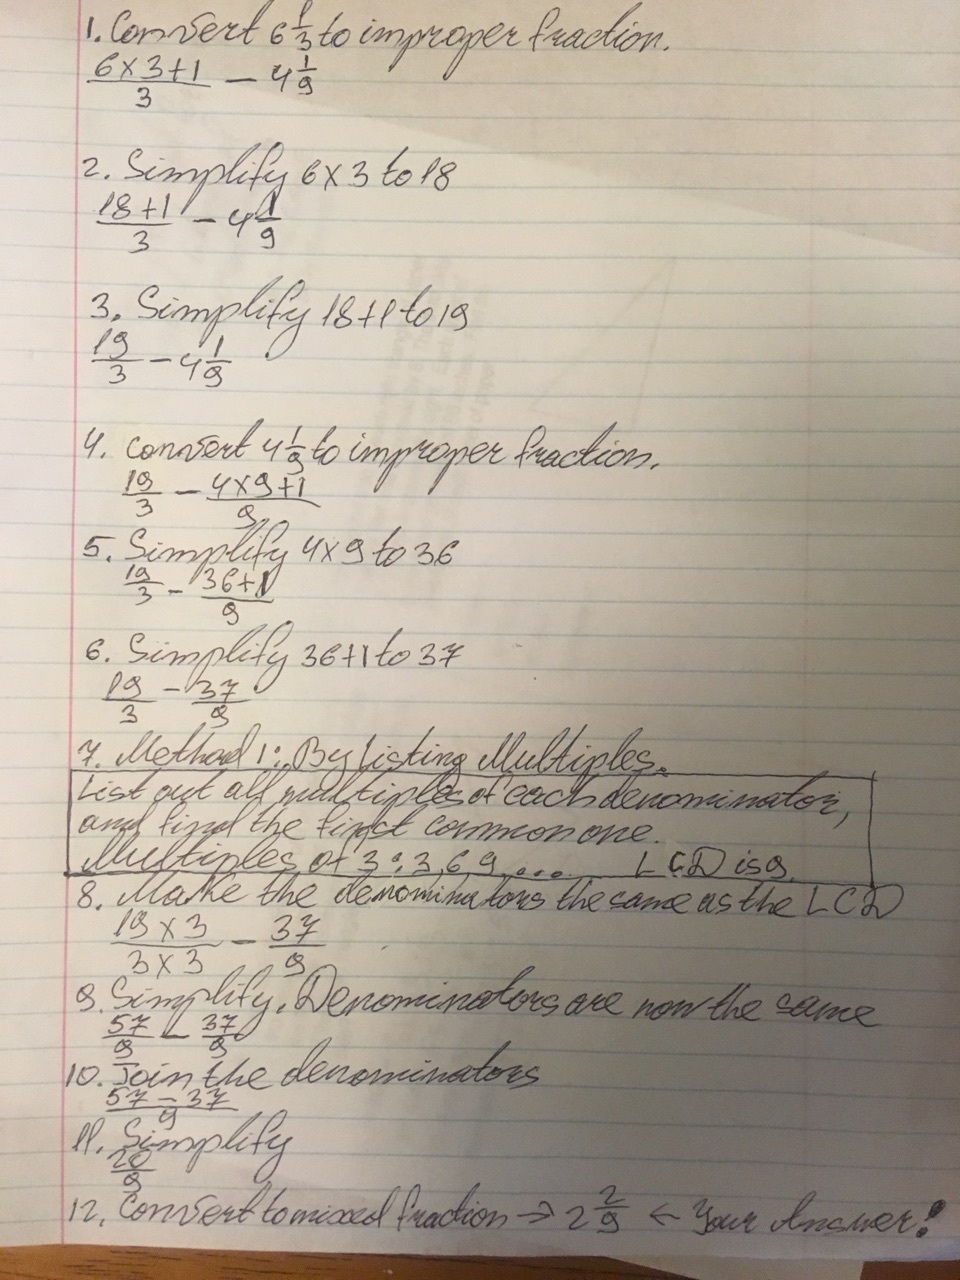 1. Convert 6 1/3 to improper fraction.
6×3+1/3 — 4 1/9
2. Simplify 6×3 to 18
18+1/3 — 4 1/9
3. Simplify 18+1 to 19
19/3 — 4 1/9
4. Convert 4 1/9 to improper fraction.
19/3 — 4×9+1/9
5. Simplify 4×9 to 36
19/3 — 36+1/9
6. Simplify 36+1 to 37
19/3 — 37/9
7. Method 1: By Listing Multiples.
List out all multiples of each denominator,
and find the first common one.
Multiples of 3: 3,6,9,... LCD is 9.
8. Make the denominators the same as the LCD
19×3/3×3 — 37/9
9. Simplify. Denominators are now the same
57/9 — 37/9
10. Join the denominators
57—37/9
11. Simplify
20/9
12. Convert to mixed fraction → 2 2/9 ← Your Answer!